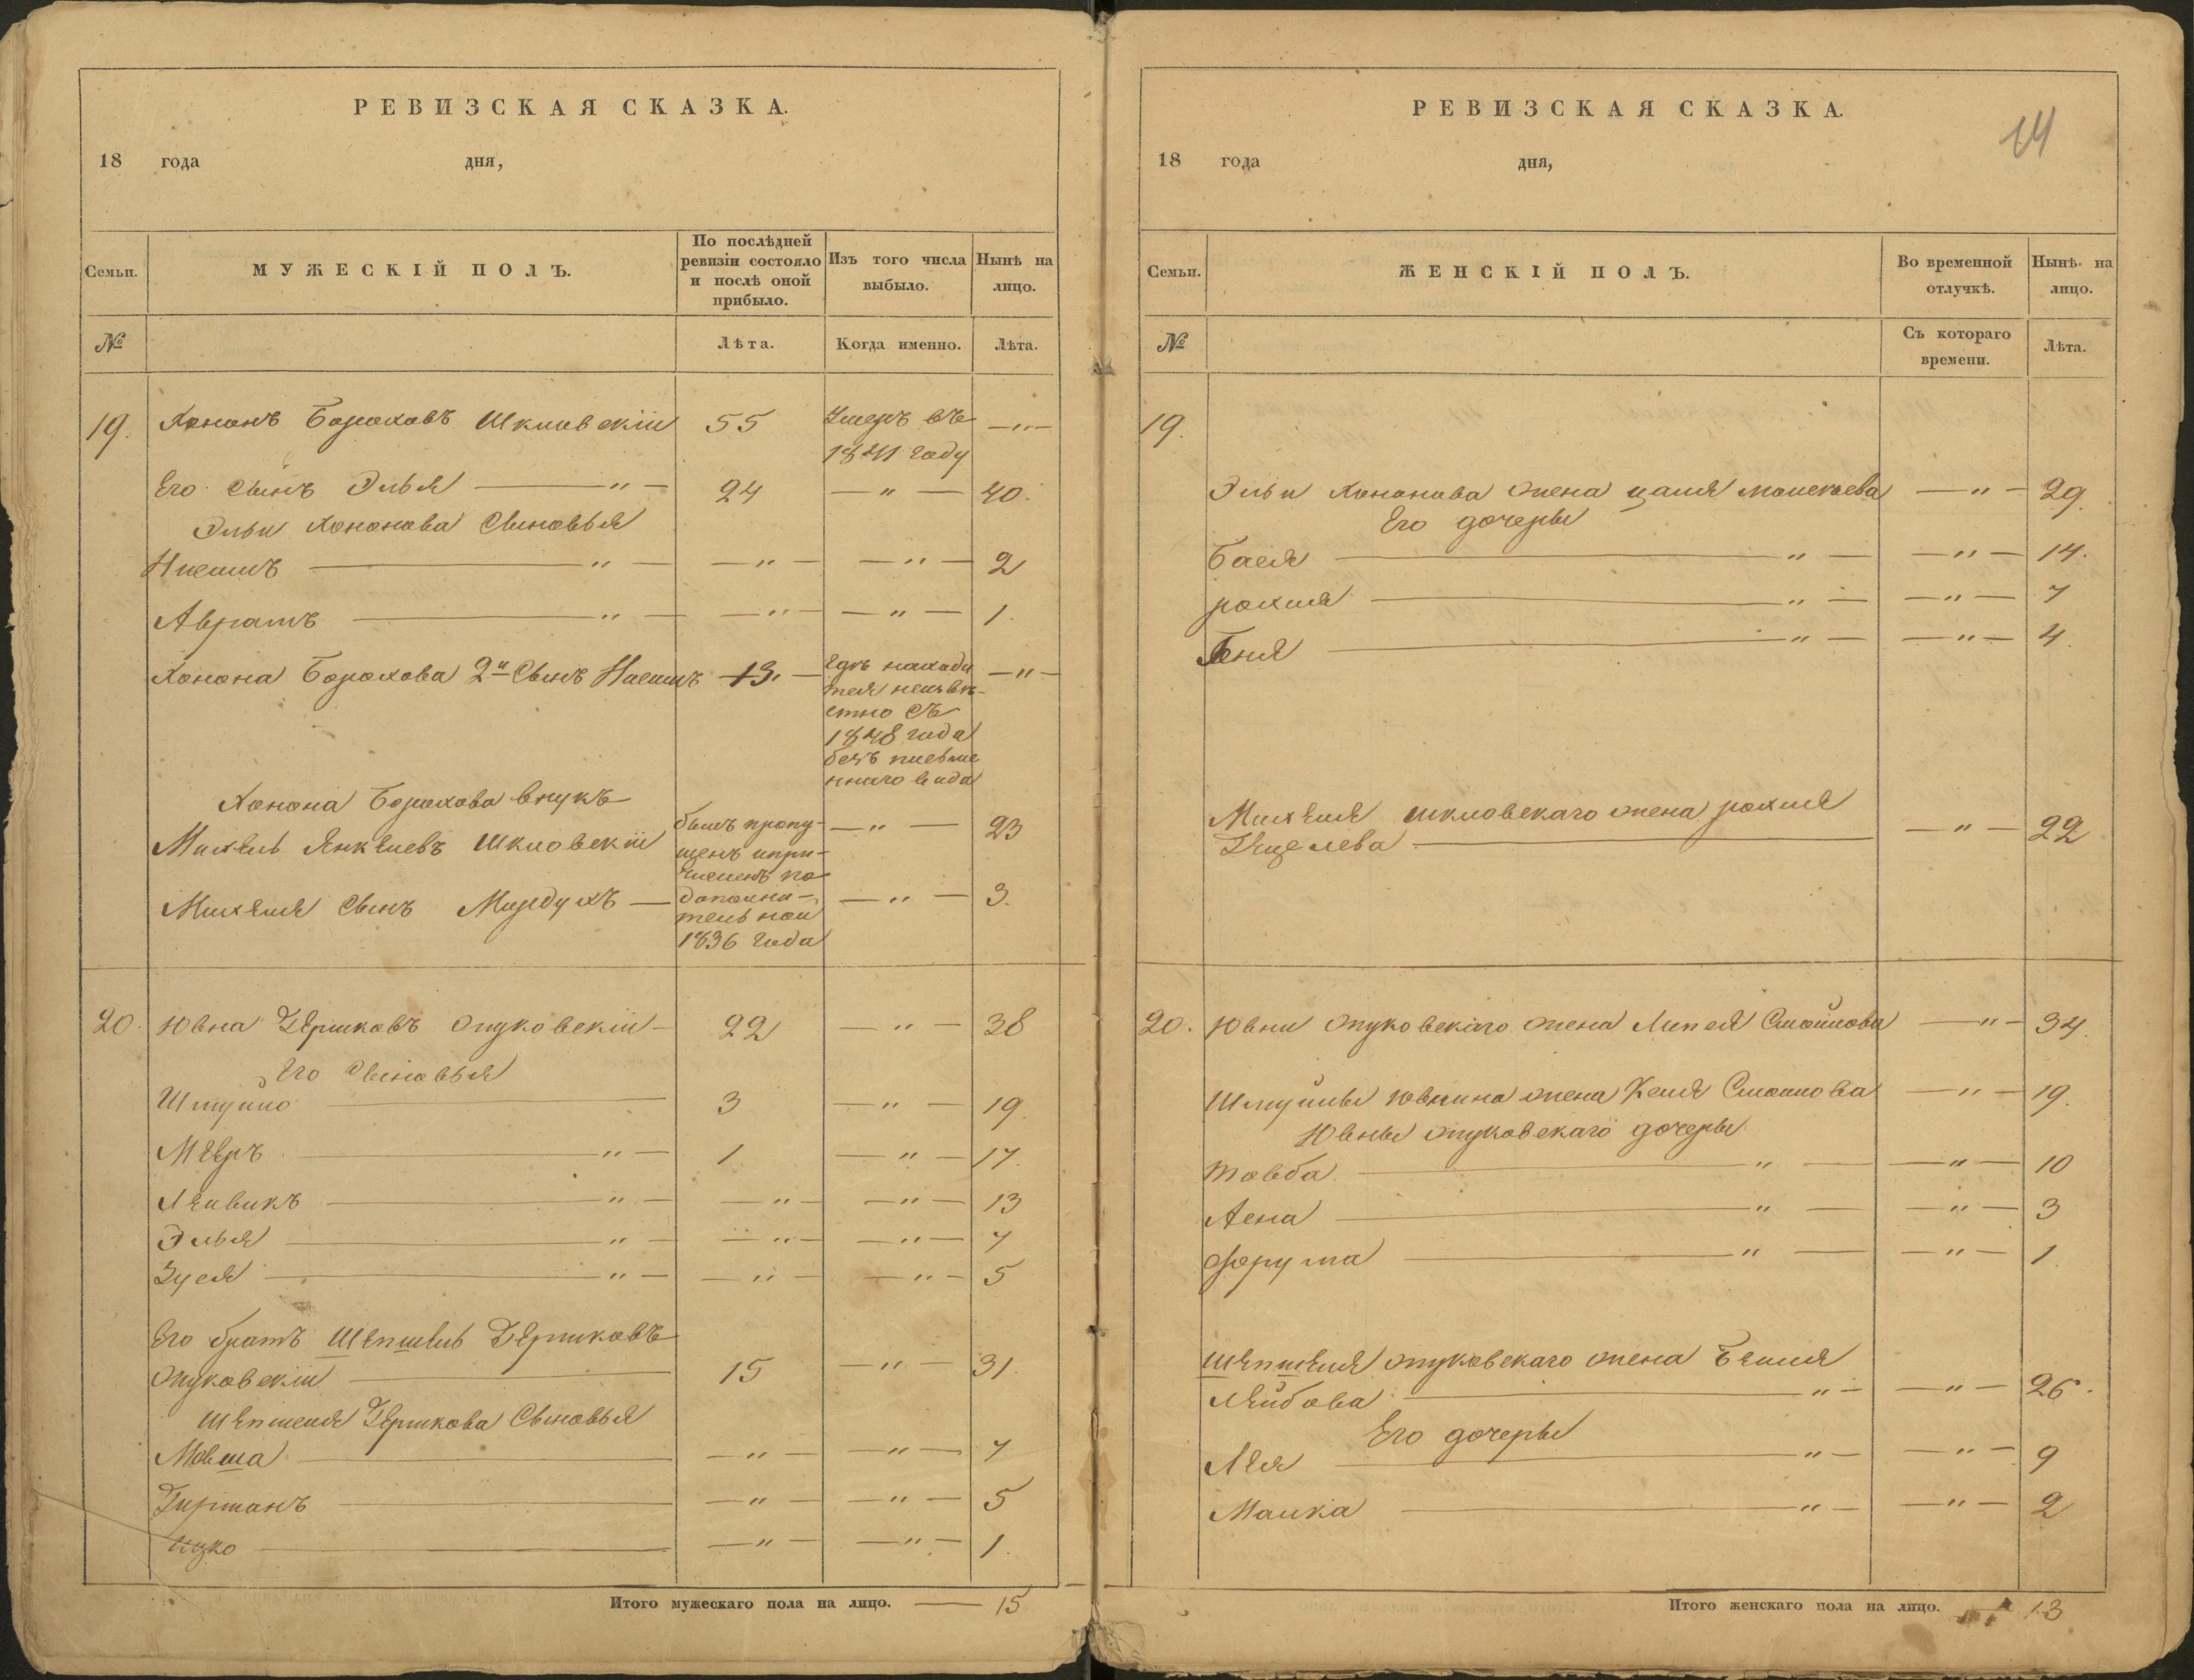 РЕВИЗСКАЯ СКАЗКА.
18 года дня,
Семьи. МУЖЕСКІЙ ПОЛЪ. По послѣдней ревизіи состояло и послѣ оной прибыло. Изъ того числа выбыло. Нынѣ на лицо.
№ Лѣта. Когда именно. Лѣта.
19. Хононъ Бороховъ Шкловскій 55 Умеръ въ —„—
1841 году
Его Сынъ Элья — „ — 24 — „ — 40.
Эльи Хононова Сыновья
— „ — — „ — — „ — 2
Авратъ — „ — — „ — — „ — 1.
Хонона Борохова 2й Сынъ 13. — Гдѣ находи —„—
тся неизвѣ-
стно съ
1848 года
безъ письме
ннаго вида
Хонона Борохова внукъ
Михель Янкелевъ Шкловскій былъ пропу- — „ — 23
щенъ и при-
численъ по
Михеля Сынъ — дополни- — „ — 3.
тельной
1836 года
20. Ювна Гершковъ Опуковскій — 22 — „ — 38
Его Сыновья
Шмуйло 3 — „ — 19.
Мевръ — „ — 1 — „ — 17.
Лейвикъ — „ — — „ — — „ — 13
Элья — „ — — „ — — „ — 7
Зуся — „ — — „ — — „ — 5
Его братъ Шепшель Гершковъ
Опуковскій 15 — „ — 31.
Шепшеля Гершкова Сыновья
Мовша — „ — — „ — 7
Гиршанъ — „ — — „ — 5
Ицко — „ — — „ — 1.
Итого мужескаго пола на лицо. — 15
РЕВИЗСКАЯ СКАЗКА.
14
18 года дня,
Семьи. ЖЕНСКІЙ ПОЛЪ. Во временной отлучкѣ. Нынѣ на лицо.
№ Съ котораго времени. Лѣта.
19.
Эльи Хононова жена Цаля — „ — 29.
Его дочеры
Бася — „ — — „ — 14.
рохля — „ — — „ — 7
Геня — „ — — „ — 4.
Михеля Шкловскаго жена рохля
Гецелева — „ — 22
20. Ювни Опуковскаго жена Липея Смойлова — „ — 34.
Шмуйлы Ювнина жена Смойлова — „ — 19.
Ювны Опуковскаго дочеры
товба — „ — — „ — 10
Асна — „ — — „ — 3
фрума — „ — — „ — 1.
Шепшеля Опуковскаго жена Бейля
Лейбова — „ — — „ — 26.
Его дочеры
Лея — „ — — „ — 9
Малка — „ — — „ — 2
Итого женскаго пола на лицо. 13